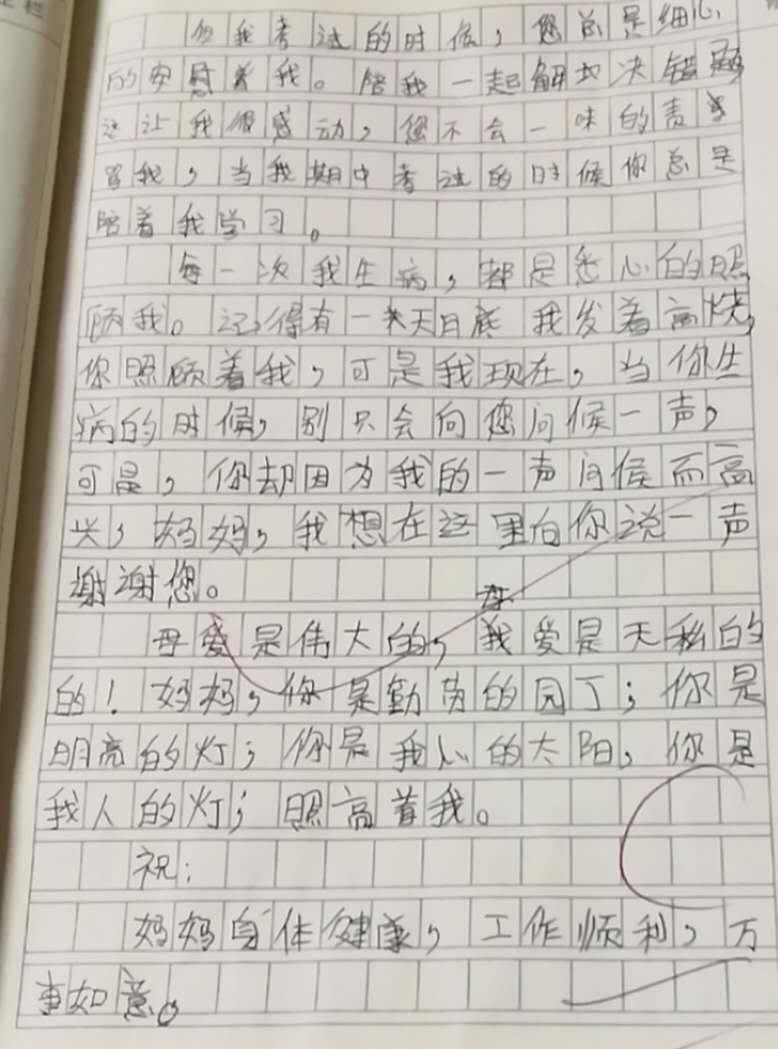 但我考过的时候，您总是细心
的安慰着我。陪我一起解决错题
这让我很感动，您不会一味的责
骂我，当我期中考过的时候你总是
陪着我学习。
每一次我生病，都是悉心的照
顾我。记得有一天月底我发着高烧，
你照顾着我，可是我现在，当你生
病的时候，别只会向您问候一声，
可是，你却因为我的一声问候而高
兴，妈妈，我想在这里向你说一声
谢谢您。
母
母爱是伟大的，我爱是无私的
的！妈妈，你是勤劳的园丁；你是
明亮的灯；你是我心的太阳，你是
我人的灯；照高着我。
祝：
妈妈身体健康，工作顺利，万
事如意。